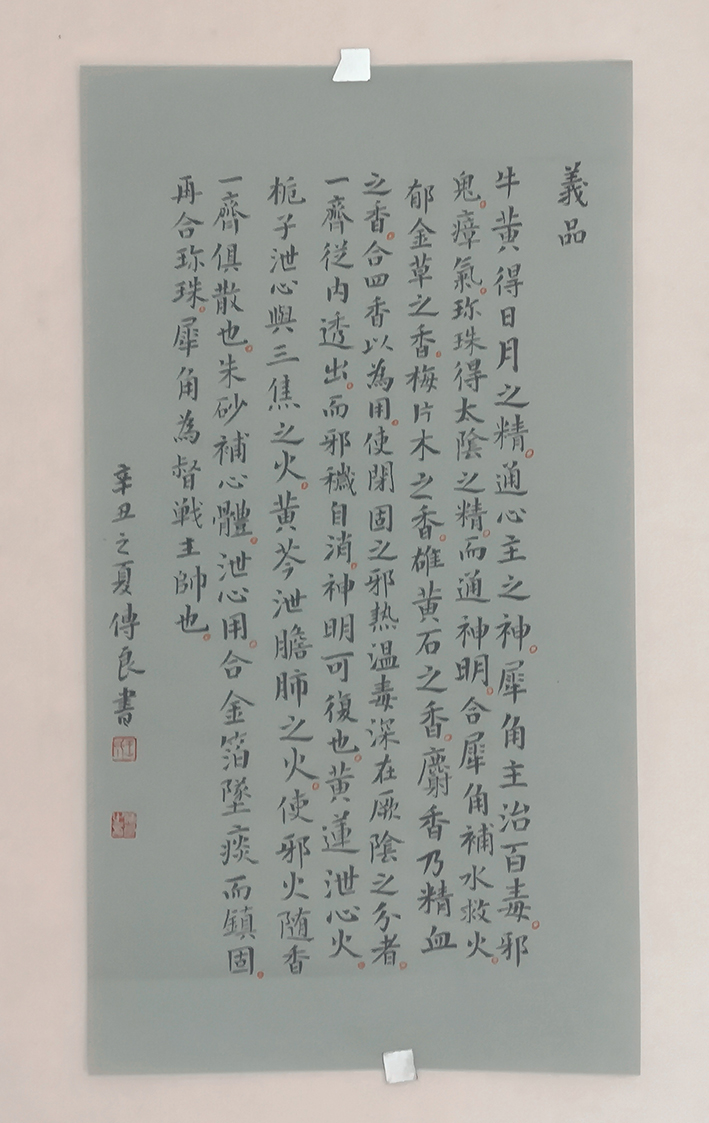 義品
牛黄得日月之精。通心主之神。犀角主治百毒。邪
鬼。瘴氣。珎珠得太陰之精。而通神明。合犀角補水救火。
郁金草之香。梅片木之香。雄黄石之香。麝香乃精血
之香。合四香以為用。使閉固之邪熱温毒深在厥陰之分者。
一齊從内透出。而邪穢自消。神明可復也。黄蓮泄心火。
栀子泄心與三焦之火。黄芩泄膽肺之火。使邪火随香
一齊俱散也。朱砂補心體。泄心用。合金箔墜痰而鎮固。
再合珎珠。犀角為督戦主帥也。
辛丑之夏傳良書